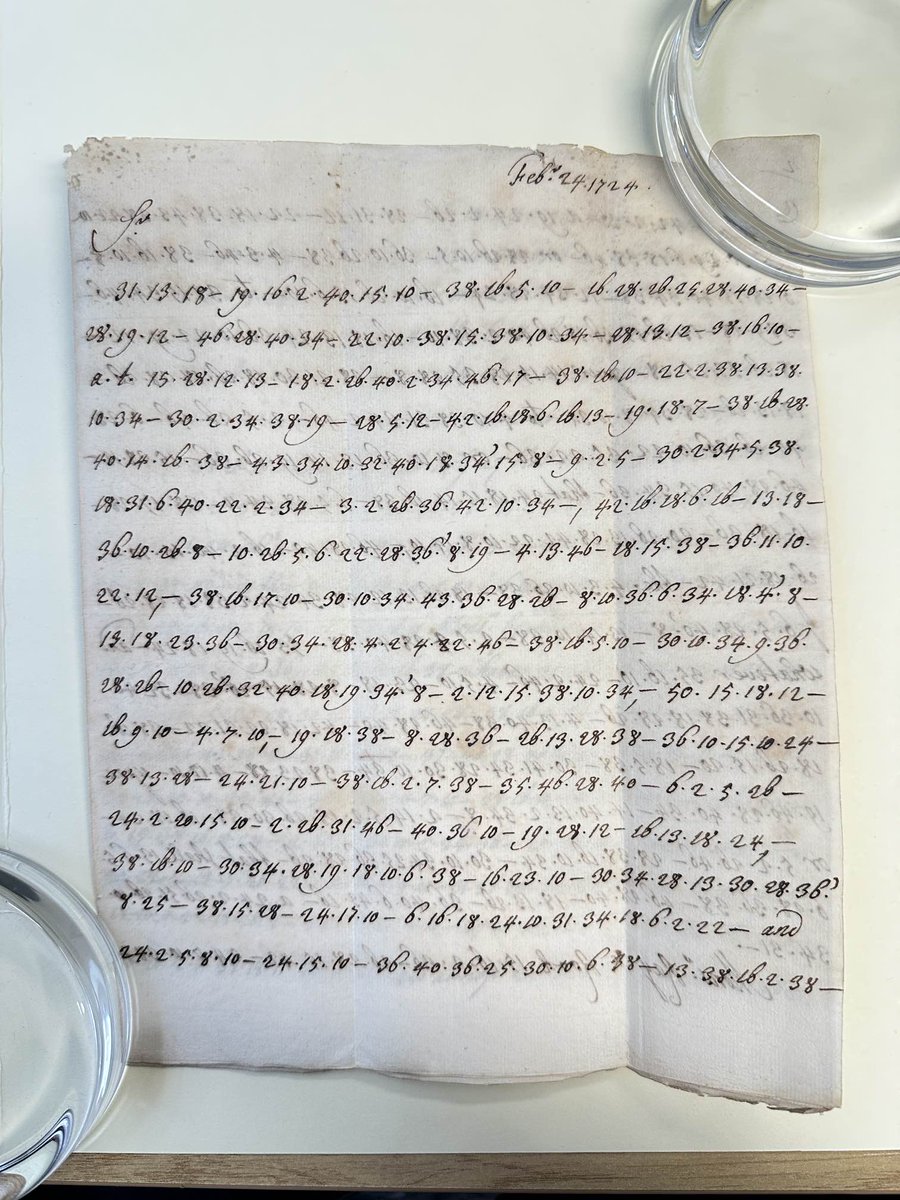 Feb.ʸ 24. 1724.
Sr
31·13·18– 19·16·2·40·15·10– 38·16·5·10– 16·28·26·25·28·40·34–
28·19·12– 46·28·40·34– 22·10·38·15·38·10·34– 28·13·12– 38·16·10–
a·t· 15·28·12·13– 18·2·26·40·2·34·46·17– 38·16·10– 22·2·38·13·38·
10·34– 30·2·34·38·19– 28·5·12– 42·16·18·6·16·13– 19·18·7– 38·16·28·
40·14·16·38– 43·34·10·32·40·18·34'·15·8– 9·2·5– 30·2·34·5·38·
18·31·6·40·22·2·34– 3·2·26·36·42·10·34–, 42·16·18·6·16– 13·18–
36·10·26·8– 10·26·5·6·22·28·36'·8·19– 4·13·46– 18·15·38– 36·11·10·
22·12,– 38·16·17·10– 30·10·34·43·36·28·26– 8·10·36·6·34·18·4'·8–
13·18·23·36– 30·34·28·4·2·4·22·46– 38·16·5·10– 30·10·34·9·36·
28·26– 10·26·32·40·18·19·34'·8– 2·12·15·38·10·34,– 50·15·18·12–
16·9·10– 4·7·10–, 19·18·38– 8·28·36– 26·13·28·38– 36·10·15·10·24–
38·13·28– 24·21·10– 38·16·2·7·38– 35·46·28·40– 6·2·5·26–
24·2·20·15·10– 2·26·31·46– 40·36·10– 19·28·12– 16·13·18·24,–
38·16·10– 30·34·28·19·18·10·6·38– 16·23·10– 30·34·28·13·30·28·36'
8·25– 38·15·28– 24·17·10– 6·16·18·24·10·31·34·18·6·2·22– and
24·2·5·8·10– 24·15·10– 36·40·36·25·30·10·6·38– 13·38·16·2·38–